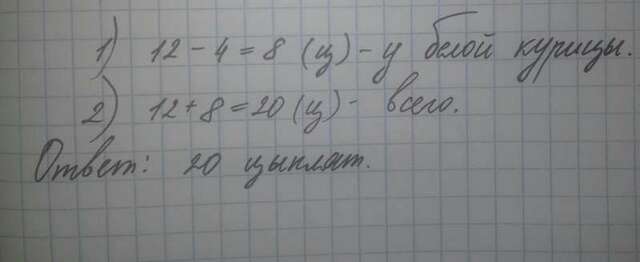 1) 12 - 4 = 8 (ц) - у белой курицы.
2) 12 + 8 = 20 (ц) - всего.
Ответ: 20 цыплят.